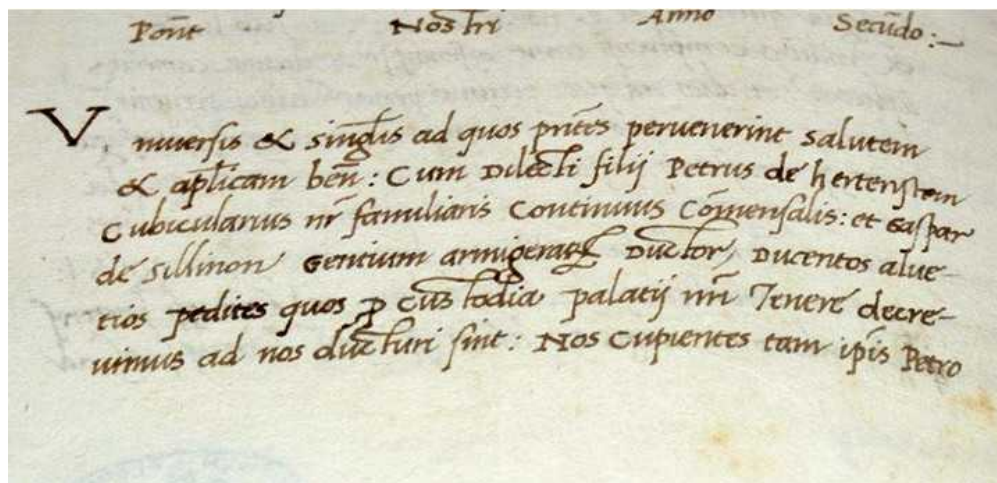 Pont̄ Nostri Anno Secūdo:—
Vniuersis & singlīs ad quos pn̄tes peruenerint salutem
& ap̄licam ben̄: Cum Dilecti filij Petrus de hertenstem
Cubicularius nr̄ familiaris Continuus Cōmensalis: et Gaspar
de sillinon Gentium armigeraꝝ Ductor, Ducentos alue-
tios pedites quos ꝓ Custodia palatij nr̄i Tenere decre-
uimus ad nos ducturi sint: Nos Cupientes tam ip̄is Petro